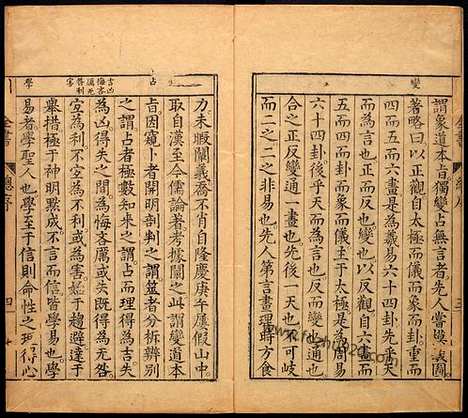 變
謂象道本旨獨變占無言者先人嘗變衷圖
著略曰以正觀自太極而象而卦重而
四而五而六畫是為羲易六十四卦先乎天
而為言正也反也變也以反觀自六畫而
五而四而三而象而儀至于太極是為周易
六十四卦後乎天而為言反而變而通也
合之正反變通一畫也先後一天也不可岐
而二之二之非易也先人第言畫理時方食
占
力未暇闡義齋不肖自隆慶庚午屢假山中
取自漢至今儒論著考據闡之此謂變道本
旨因窺卜者開明剖判之謂筮者分拆辨別
之謂占者極數知來之謂占而理得為吉失
為凶得失之間為悔吝厲或失既得為无咎
宜為利不宜為不利或為害如于趨避違于
舉措極于神明黙成不言而信皆學易也
學
易者學聖人也學至于信則命性之理得心
吉凶
悔吝
厲无
咎利
害
全書
總序
三
四